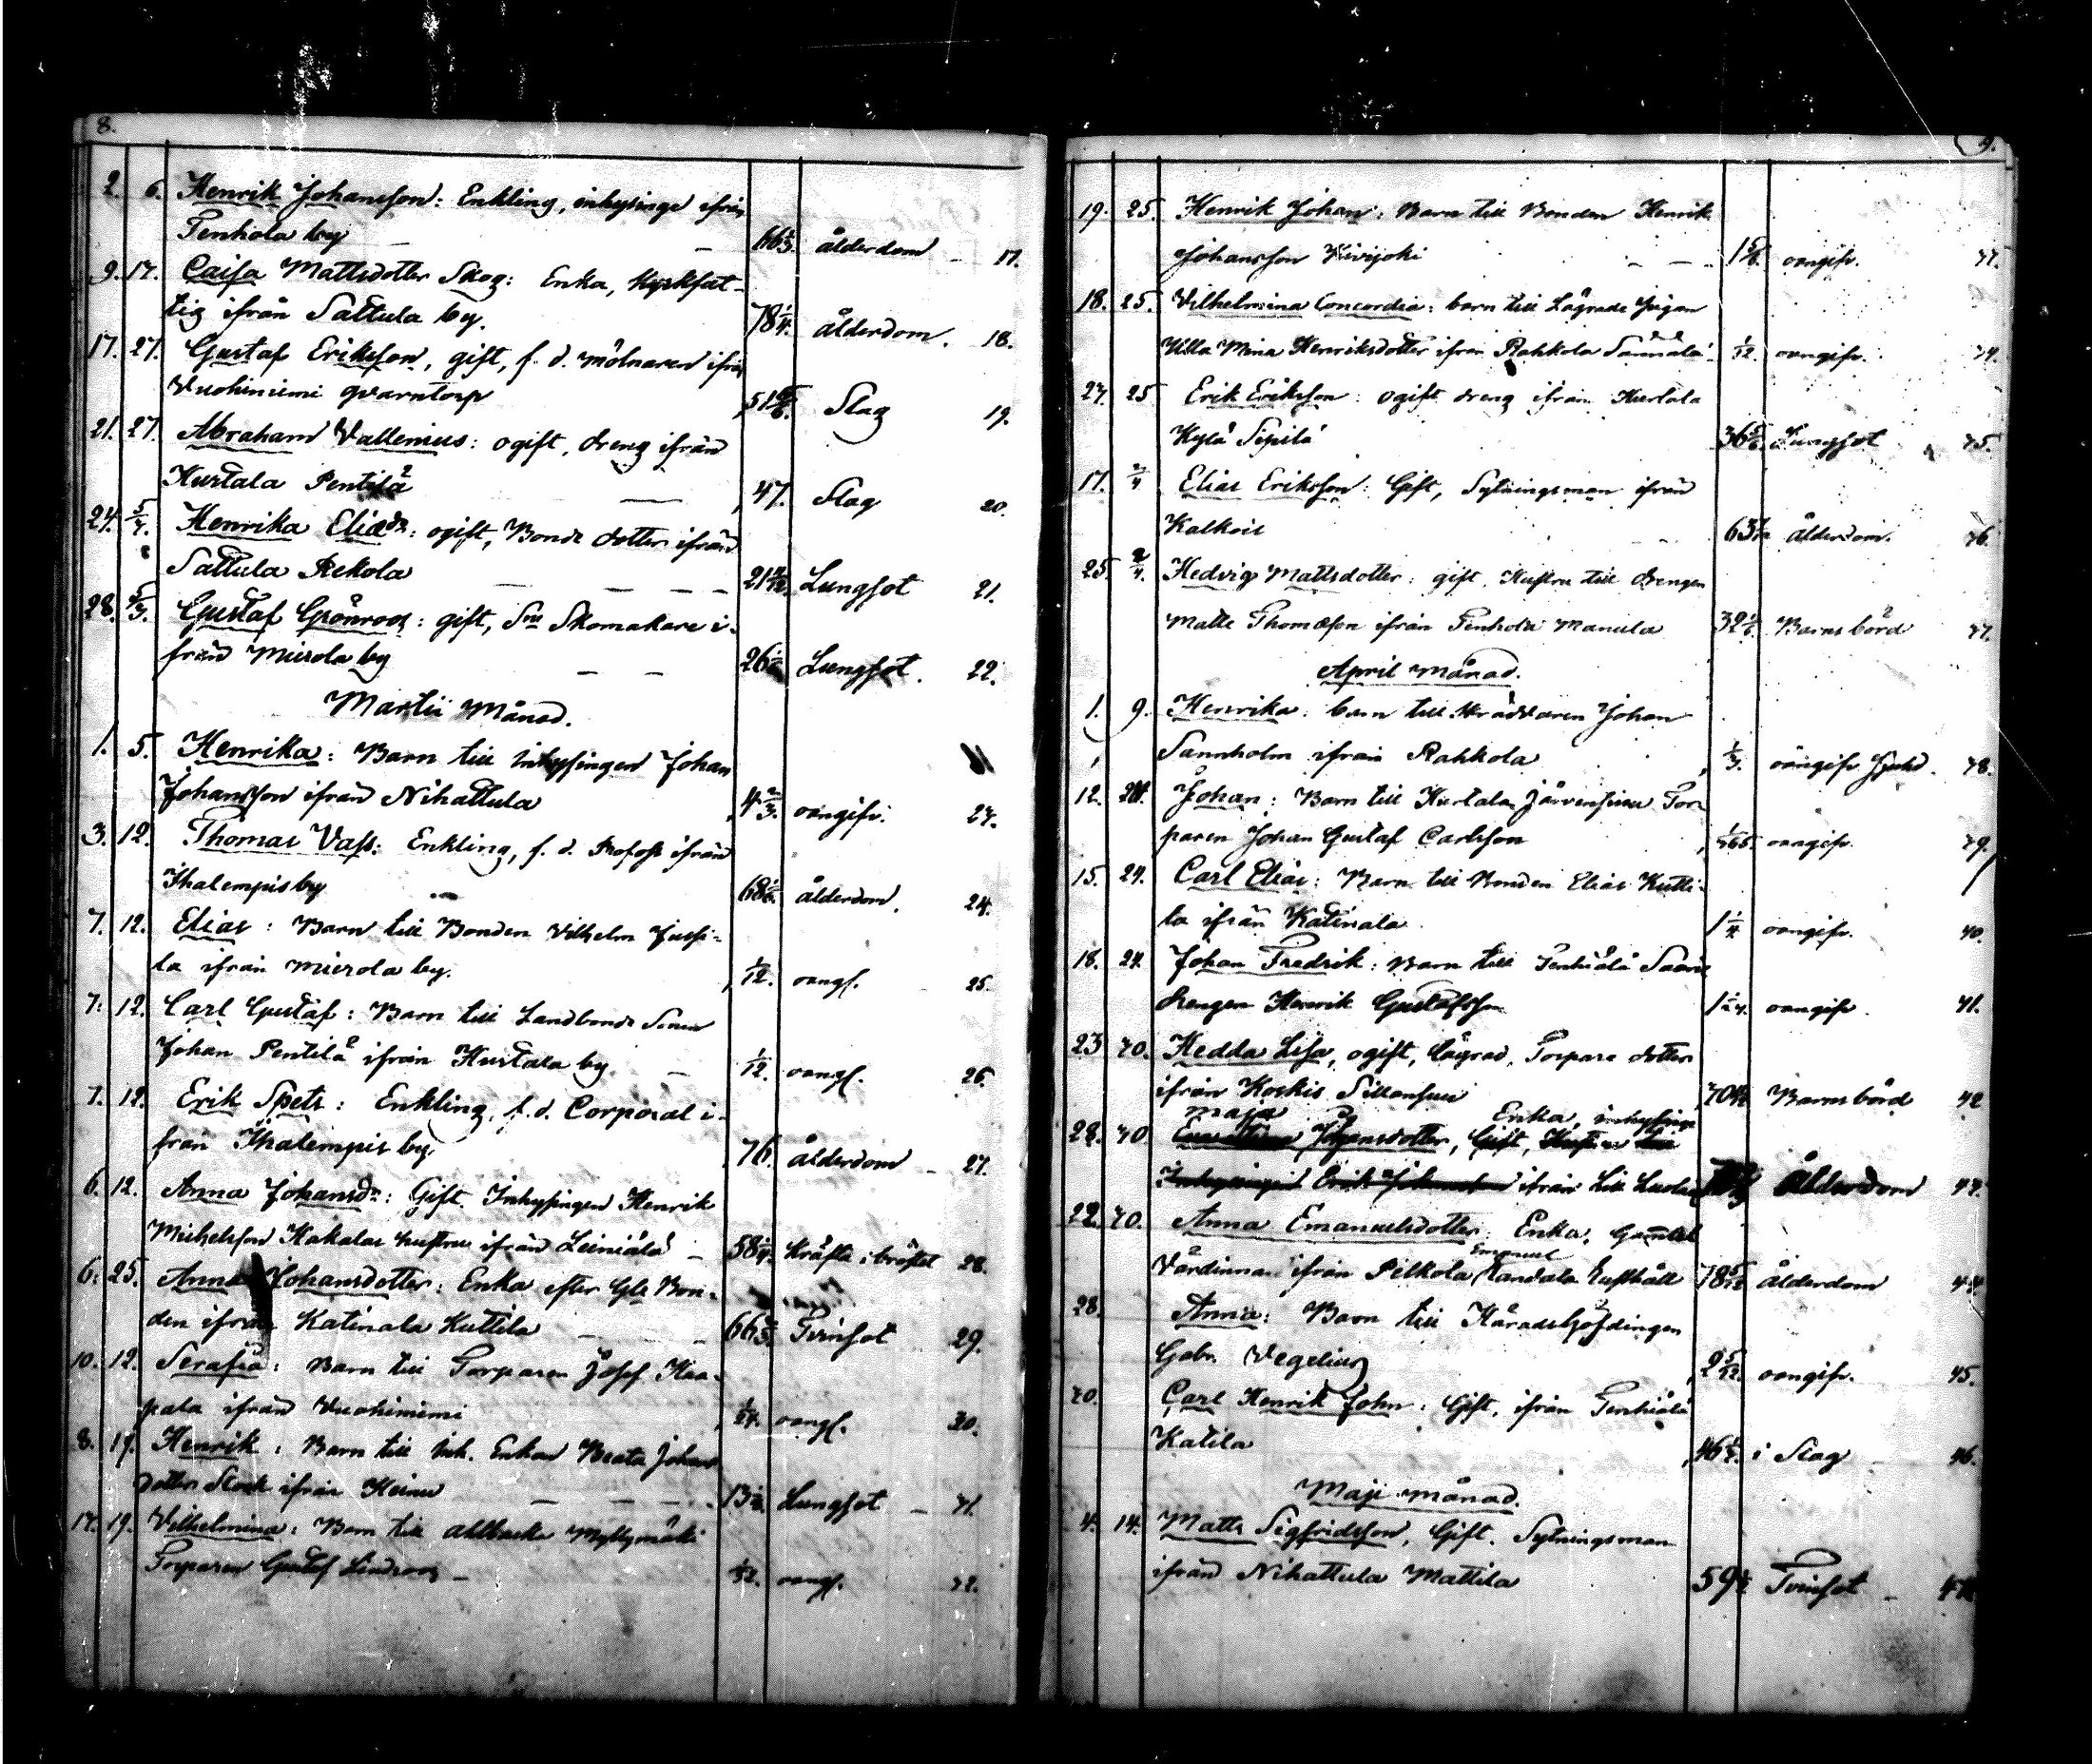 8.
2. 6. Henrik Johansson: Enkling, inhysinge ifrån
Tenhola by — — 66 1/3. ålderdom — 17.
9. 17. Caisa Mattsdotter Skog: Enka, Kyrkfat-
tig ifrån Sattula by. 78 1/4. ålderdom. 18.
17. 27. Gustaf Eriksson, gift, f. d. Mölnaren ifrån
Vuohiniemi qvarntorp 51 5/6. Slag 19.
21. 27. Abraham Vallenius: ogift, dreng ifrån
Hurtala Pentilä — 47. Slag 20.
24. 5/3. Henrika Eliædr: ogift, Bonde dotter ifrån
Sattula Rekola — — — — 21 Lungsot 21.
28. 5/3. Gustaf Grönroos: gift, Sn Skomakare i-
från Mierola by — — 26 Lungsot. 22.
Martii Månad.
1. 5. Henrika: Barn till Inhysingen Johan
Johansson ifrån Nihattula 4 2/3. oangifv. 23.
3. 12. Thomas Vass: Enkling, f. d. Profoss ifrån
Ihalempis by — 68 ålderdom. 24.
7. 12. Elias: Barn till Bonden Vilhelm Jussi-
la ifrån Mierola by. 1/12. oangf. 25.
7. 12. Carl Gustaf: Barn till Landbonde Sonen
Johan Pentilä ifrån Hurtala by — 1/12. oangf. 26.
7. 12. Erik Spets: Enkling, f. d. Corporal i-
från Ihalempis by 76. ålderdom — 27.
6. 12. Anna Johansdr: Gift. Inhysingen Henrik
Michelsson Kakalas hustru ifrån Leiniälä — 58 1/4. Kräfta i bröstet 28.
6. 25. Anna Johansdotter: Enka efter Gle Bon-
den ifrån Katinala Kuttila — — 66 Tvinsot 29.
10. 12. Serafia: Barn till Torparen Josef Haa-
pala ifrån Vuohiniemi 1/24. oangf. 30.
8. 19. Henrik: Barn till Inh. Enkan Beata Johans
dotter Stock ifrån Heinu — — — 13 Lungsot — 31.
17. 19. Vilhelmina: Barn till Ahlbacka Myllymäki
Torparen Gustaf Lindroos — 1/52. oangf. 32.
9.
19. 25. Henrik Johan: Barn till Bonden Henrik
Johansson Kivijoki — — 1 5/6. oangifv. 33.
18. 25. Vilhelmina Concordia: barn till Lägrade Pigan
Ulla Mina Henriksdotter ifrån Rahkola Sannala 1/12. oangifv. 34.
27. 25 Erik Eriksson: ogift dreng ifrån Hurtala
Kylä Sipilä 36 5/6. Lungsot 35.
17. 2/4 Elias Eriksson: Gift, Sytningsman ifrån
Kalkois 63 ålderdom. 36.
25. 2/4. Hedvig Mattsdotter: gift, Hustru till drengen
Matts Thomasson ifrån Tenhola Manula 32 1/6. Barnsbörd 37.
April Månad.
1. 9. Henrika: barn till Skräddaren Johan
Sannholm ifrån Rahkola 1/3. oangifv Sjukd. 38.
12. 24. Johan: Barn till Hurtala Järvensivu Tor-
paren Johan Gustaf Carlsson 1/365. oangifv. 39.
15. 24. Carl Elias: Barn till Bonden Elias Kutti-
la ifrån Katinala 1 1/4 oangifv. 40.
18. 24. Johan Fredrik: Barn till Tenhiälä Saari
drengen Henrik Gustafsson 1 1/24. oangifv. 41.
23 30. Hedda Lisa, ogift, lägrad, Torpare dotter
ifrån Koskis Sillansuu 30 Barnsbörd 42
Maja Enka, inhysinge
28. 30 Johansdotter, Gift, Hustru till
Inhysingen Erik Johansson ifrån Lill Luolaja Ålderdom 43.
22. 30. Anna Emanuelsdotter: Enka, Gamla
Emanuel
Värdinnan ifrån Pelkola Landala Rusthåll 78 5/12 ålderdom 44.
28. Anna: Barn till Häradshöfdingen
Gabr. Vegelius 2 5/12. oangifv. 45.
30. Carl Henrik John: Gift, ifrån Tenhiälä
Katila 46 i Slag 46.
Maji Månad.
4. 14. Matts Sigfridsson, Gift. Sytningsman
ifrån Nihattula Mattila 59 Tvinsot — 47